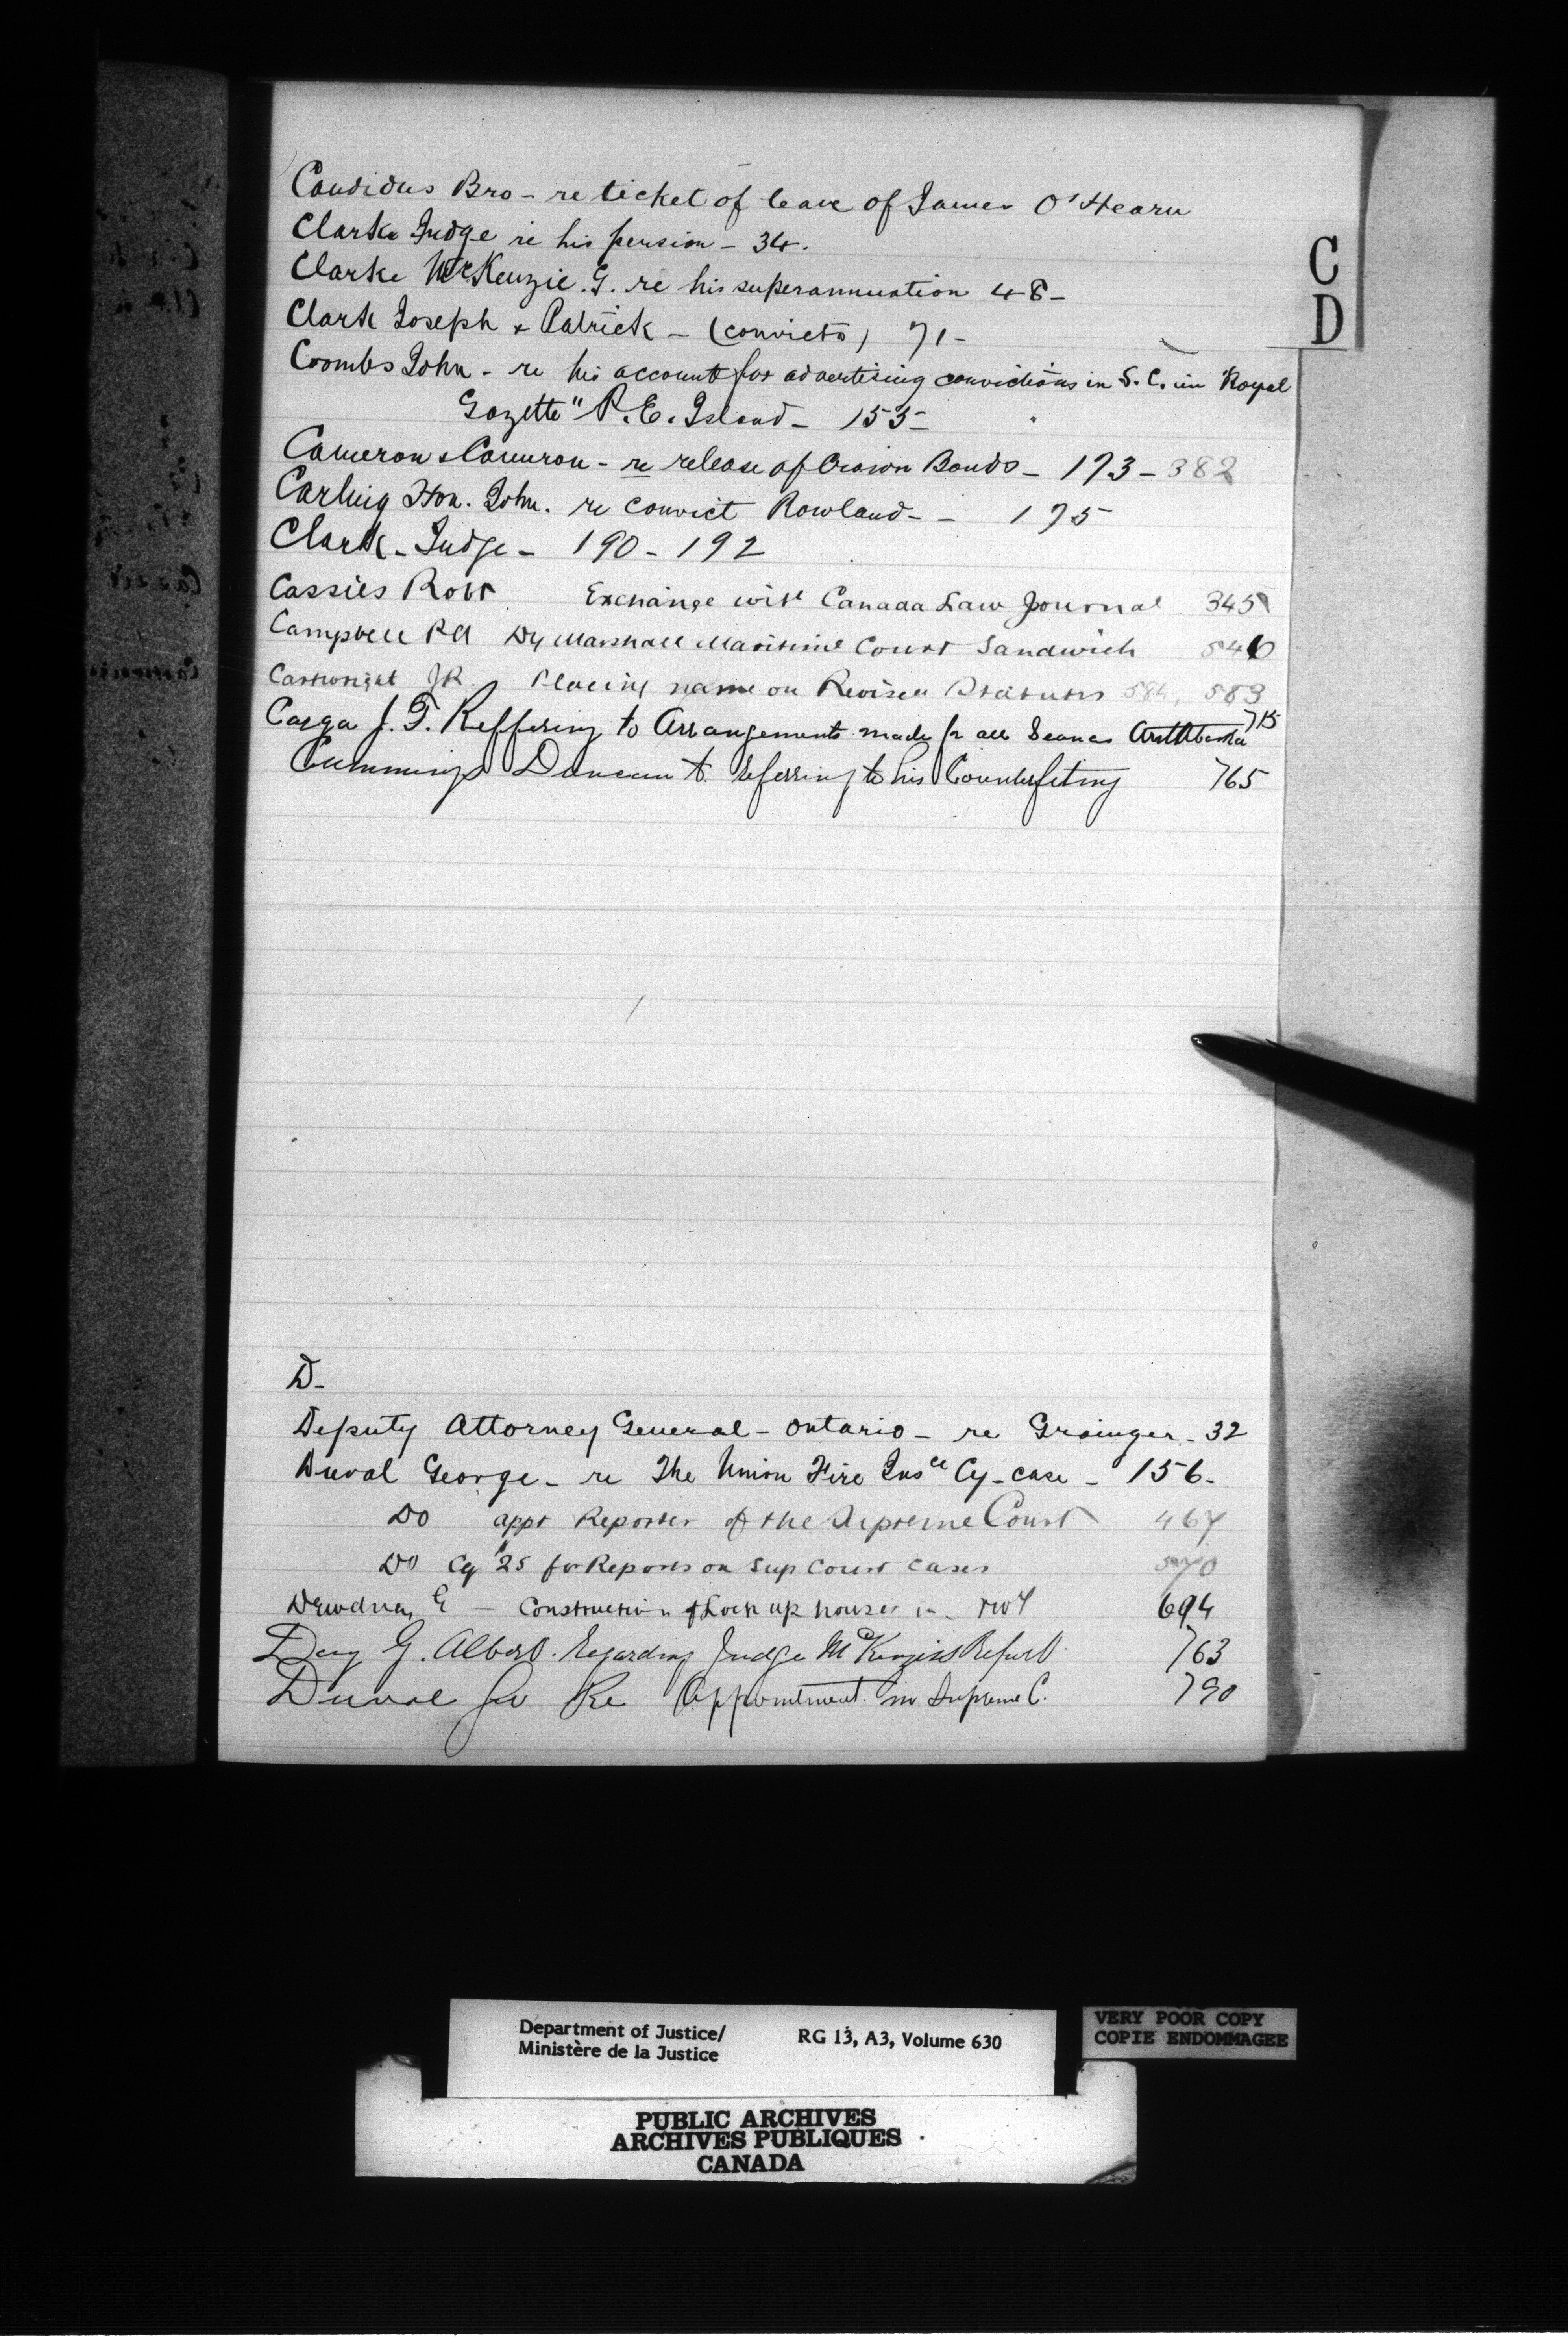 Candidus Bro - re ticket of leave of James O'Hearn
Clarke Judge re his pension - 34.
Clarke McKenzie. G. re his superannuation 48 -
Clark Joseph & Patrick - (convicts) 71 -
Coombs John - re his account for advertising convictions in S. C. in Royal
Gazette" P. E. Island - 155 -
Cameron & Cameron - re release of Crown Bonds - 173 - 382
Carling Hon. John. re convict Rowland - - 175
Clark - Judge - 190 - 192
Cassils Robt Exchange with Canada Law Journal 345
Campbell Dy Marshall Maritime Court Sandwich 546
Cartwright JR. Placing name on Revised Statutes 584, 583
J. T. Reffering to Arrangements made for all 715
Cummings Duncan referring to his Counterfeiting 765
C
D
D -
Deputy Attorney General - Ontario - re Grainger - 32
Duval George - re The Union Fire Insce Cy - case - 156 -
Do appt Reporter of the Supreme Court 467
Do Cq $25 for Reports on Sup Court Cases 570
Dewdney E - Construction of Lock up houses in NWT 694
Day G. Albert. Regarding Judge McKenzies Report 763
Duval Re Appointment in Supreme C. 790
Department of Justice/
Ministère de la Justice
RG 13, A3, Volume 630
VERY POOR COPY
COPIE ENDOMMAGEE
PUBLIC ARCHIVES
ARCHIVES PUBLIQUES
CANADA